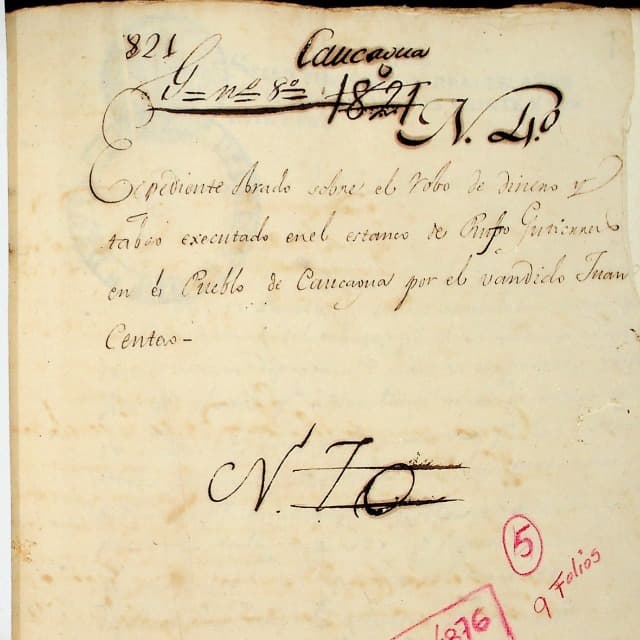 821
Caucagua
G = nº 8º
1821
N. 4.º
Expediente obrado sobre el robo de dinero y
tabaco executado en el estanco de Rufo Gutierrez
en el Pueblo de Caucagua por el vandido Juan
Centeo -
N. 70
5
9 Folios
4876